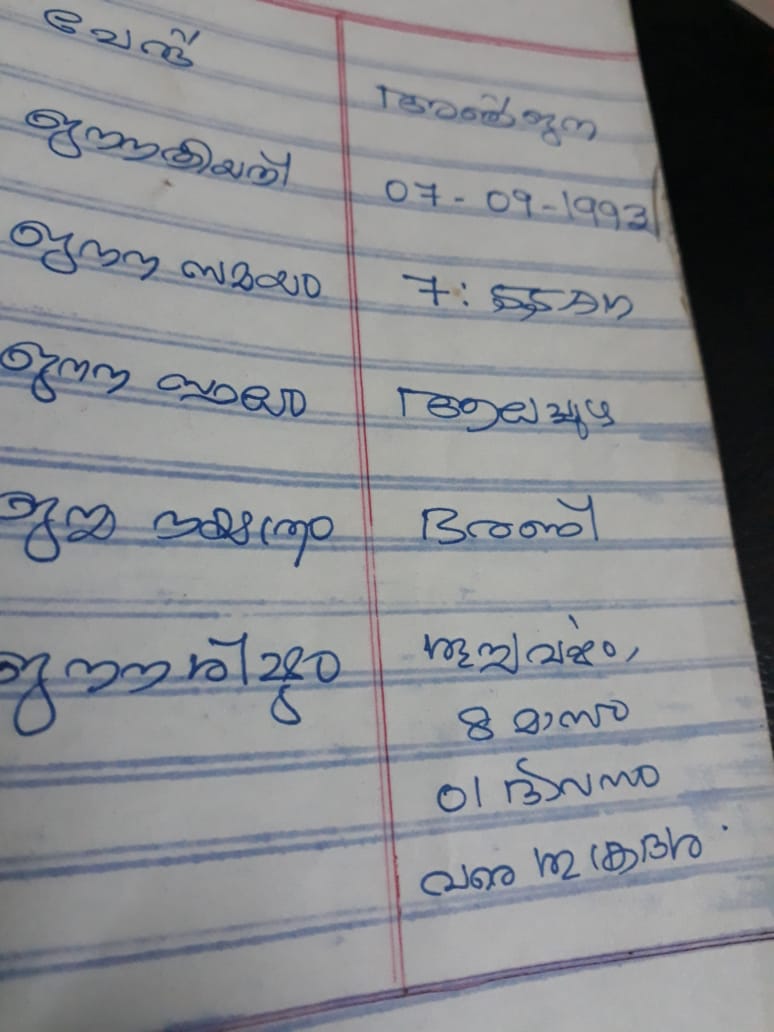 പേര് അഞ്ജന
ജനനതിയതി 07-09-1993
ജനന സമയം 7:55am
ജനന സ്ഥലം ആലപ്പുഴ
ജന്മ നക്ഷത്രം ഭരണി
ജനന ശിഷ്ടം വർഷം,
8 മാസം
01 ദിവസം
വരെ ശുക്രദശ.